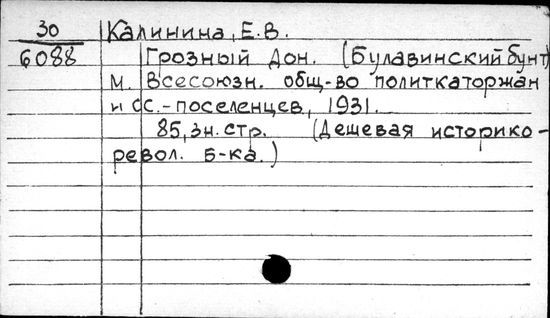 30 Калинина, Е.В.
6088 Грозный Дон. (Булавинский бунт)
М. Всесоюзн. общ-во политкаторжан
и сс.-поселенцев, 1931.
85, 3н. стр. (Дешевая историко-
револ. б-ка.)